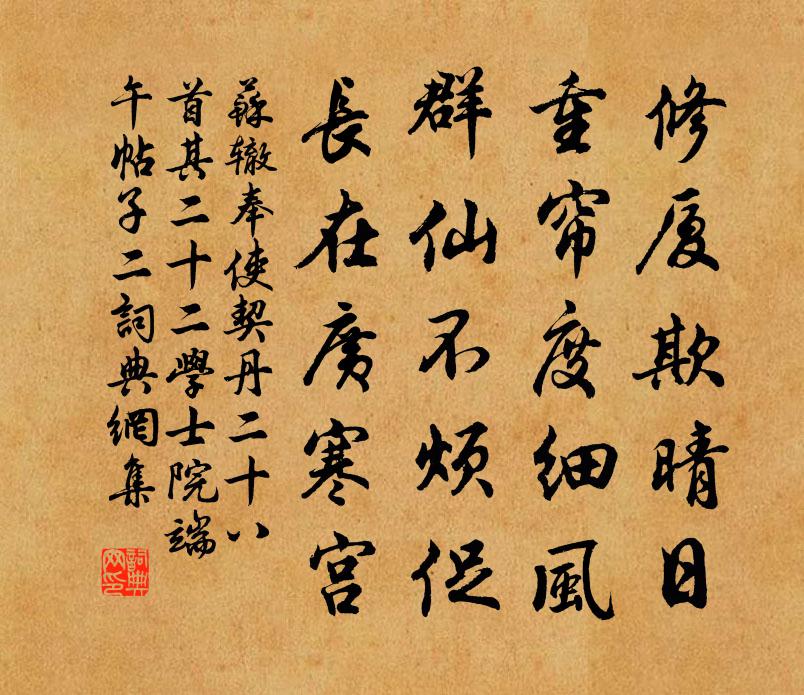 修厦欺晴日
重帘度細風
群仙不煩促
長在廣寒宫
蘇辙奉使契丹二十八
首其二十二學士院端
午帖子二詞典網集
詞典网印